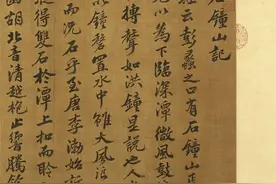 石鐘山記
經云彭蠡之口有石鐘山焉
以為下臨深潭微風鼓
搏聲如洪鐘是說也人
以鐘磬置水中雖大風浪
而況石乎至唐李渤始
得雙石於潭上扣而聆
胡北音清越枹止響騰餘